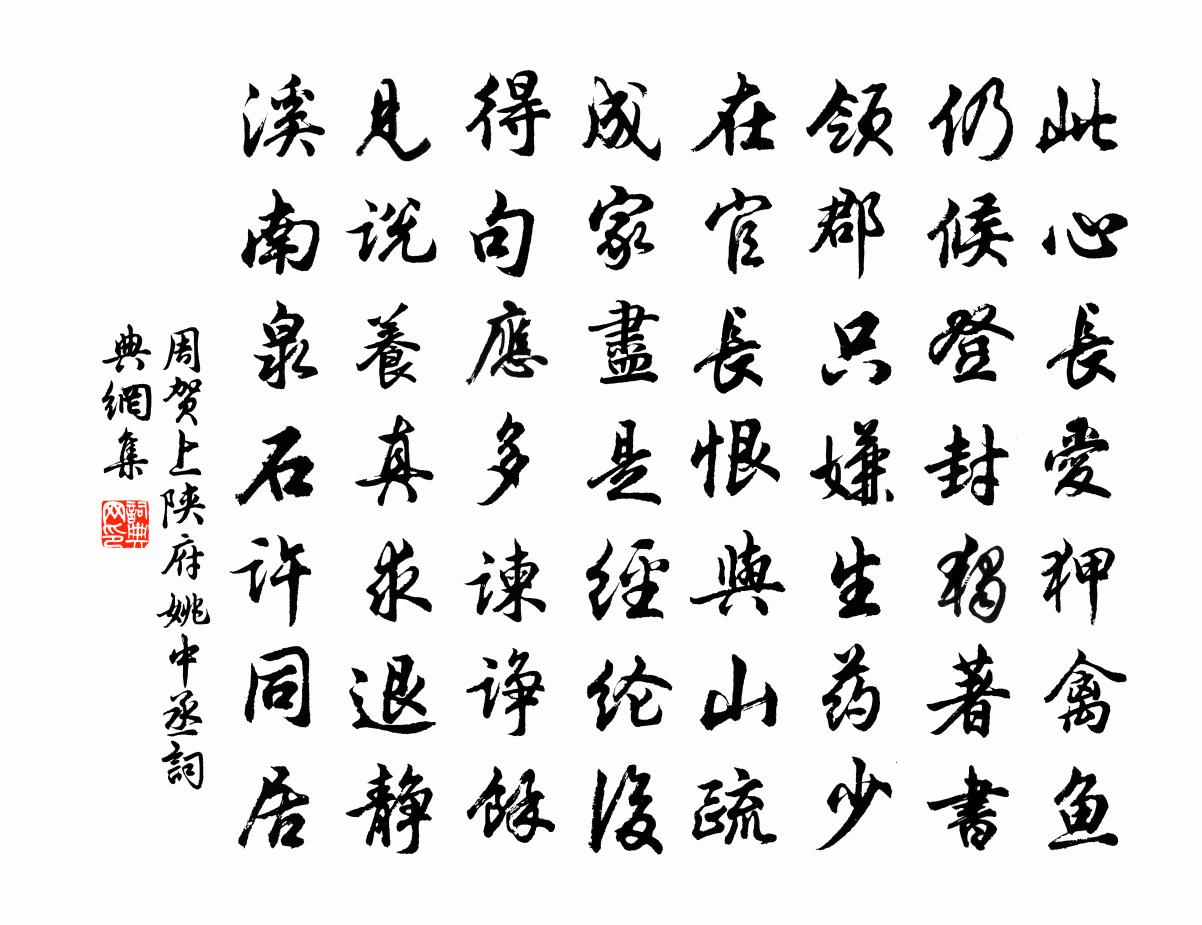 此心長愛狎禽鱼
仍候登封獨著書
領郡只嫌生药少
在官長恨與山疏
成家盡是經纶後
得句應多諫诤餘
見说養真求退静
溪南泉石许同居
周贺上陕府姚中丞詞
典網集
詞典
网印